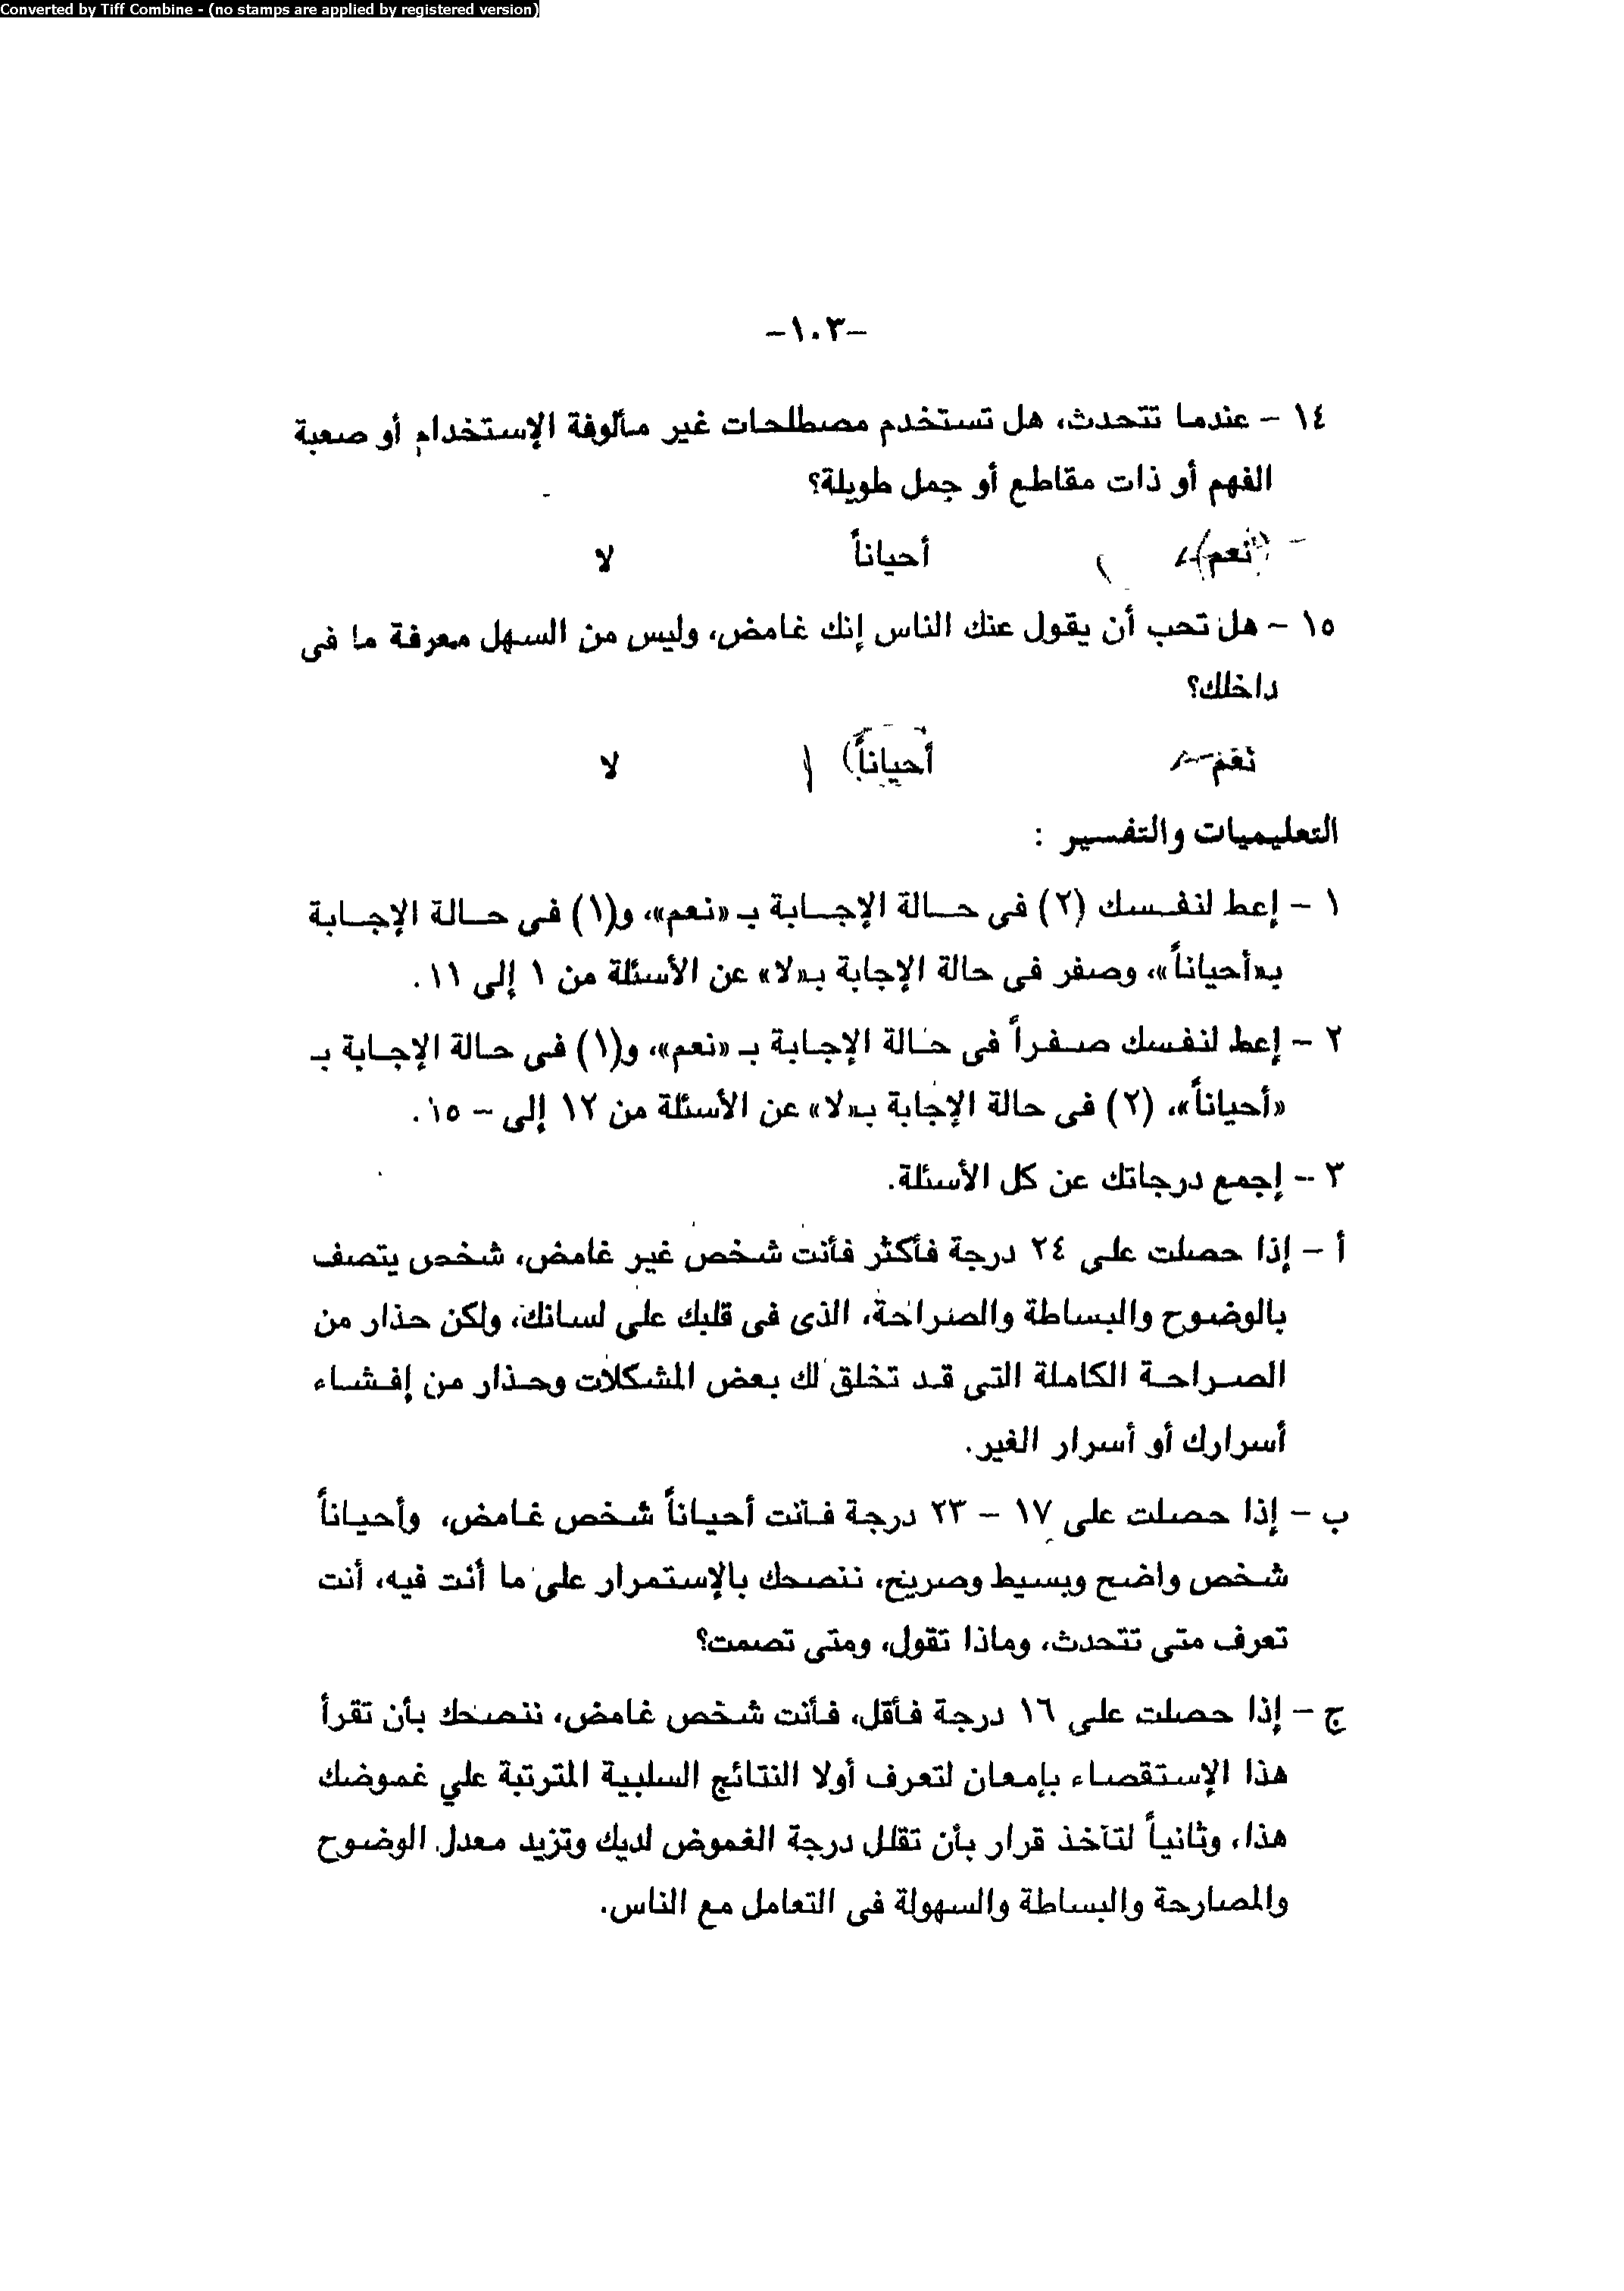 Converted by Tiff Combine - (no stamps are applied by registered version)
-١٠٣-
١٤ - عندما تتحدث، هل تستخدم مصطلحات غير مألوفة الإستخدام أو صعبة
الفهم أو ذات مقاطع أو جمل طويلة؟
نعم أحياناً لا
١٥ - هل تحب أن يقول عنك الناس إنك غامض، وليس من السهل معرفة ما فى
داخلك؟
نعم أحياناً لا
التعليميات والتفسير :
١ - إعط لنفسك (٢) فى حالة الإجابة بـ «نعم»، و(١) فى حالة الإجابة
بـ«أحياناً»، وصفر فى حالة الإجابة بـ«لا» عن الأسئلة من ١ إلى ١١.
٢ - إعط لنفسك صفراً فى حالة الإجابة بـ «نعم»، و(١) فى حالة الإجابة بـ
«أحياناً»، (٢) فى حالة الإجابة بـ«لا» عن الأسئلة من ١٢ إلى - ١٥.
٣ - إجمع درجاتك عن كل الأسئلة.
أ - إذا حصلت على ٢٤ درجة فأكثر فأنت شخص غير غامض، شخص يتصف
بالوضوح والبساطة والصراحة، الذى فى قلبك على لسانك، ولكن حذار من
الصراحة الكاملة التى قد تخلق لك بعض المشكلات وحذار من إفشاء
أسرارك أو أسرار الغير.
ب - إذا حصلت على ١٧ - ٢٣ درجة فأنت أحياناً شخص غامض، وأحياناً
شخص واضح وبسيط وصريح، ننصحك بالإستمرار على ما أنت فيه، أنت
تعرف متى تتحدث، وماذا تقول، ومتى تصمت؟
ج - إذا حصلت على ١٦ درجة فأقل، فأنت شخص غامض، ننصحك بأن تقرأ
هذا الإستقصاء بإمعان لتعرف أولا النتائج السلبية المترتبة علي غموضك
هذا، وثانياً لتأخذ قرار بأن تقلل درجة الغموض لديك وتزيد معدل الوضوح
والمصارحة والبساطة والسهولة فى التعامل مع الناس.